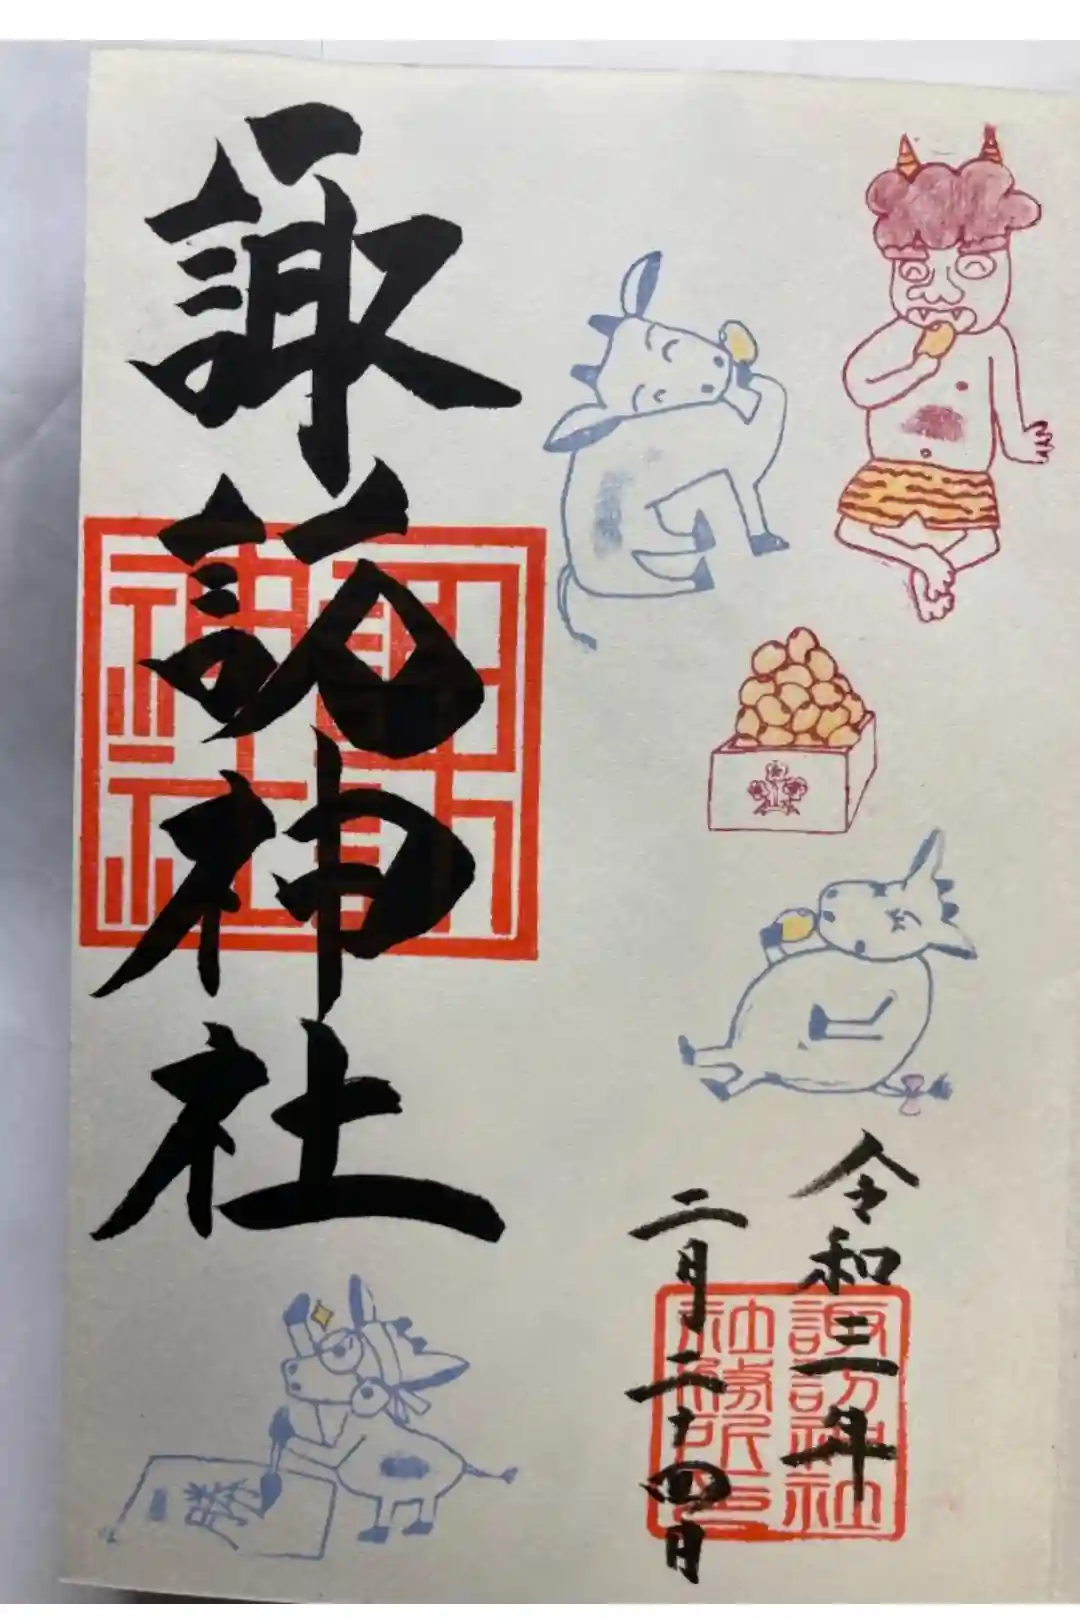 令和三年
二月二十四日
諏訪神社
社務所印
諏訪神社
諏訪
神社